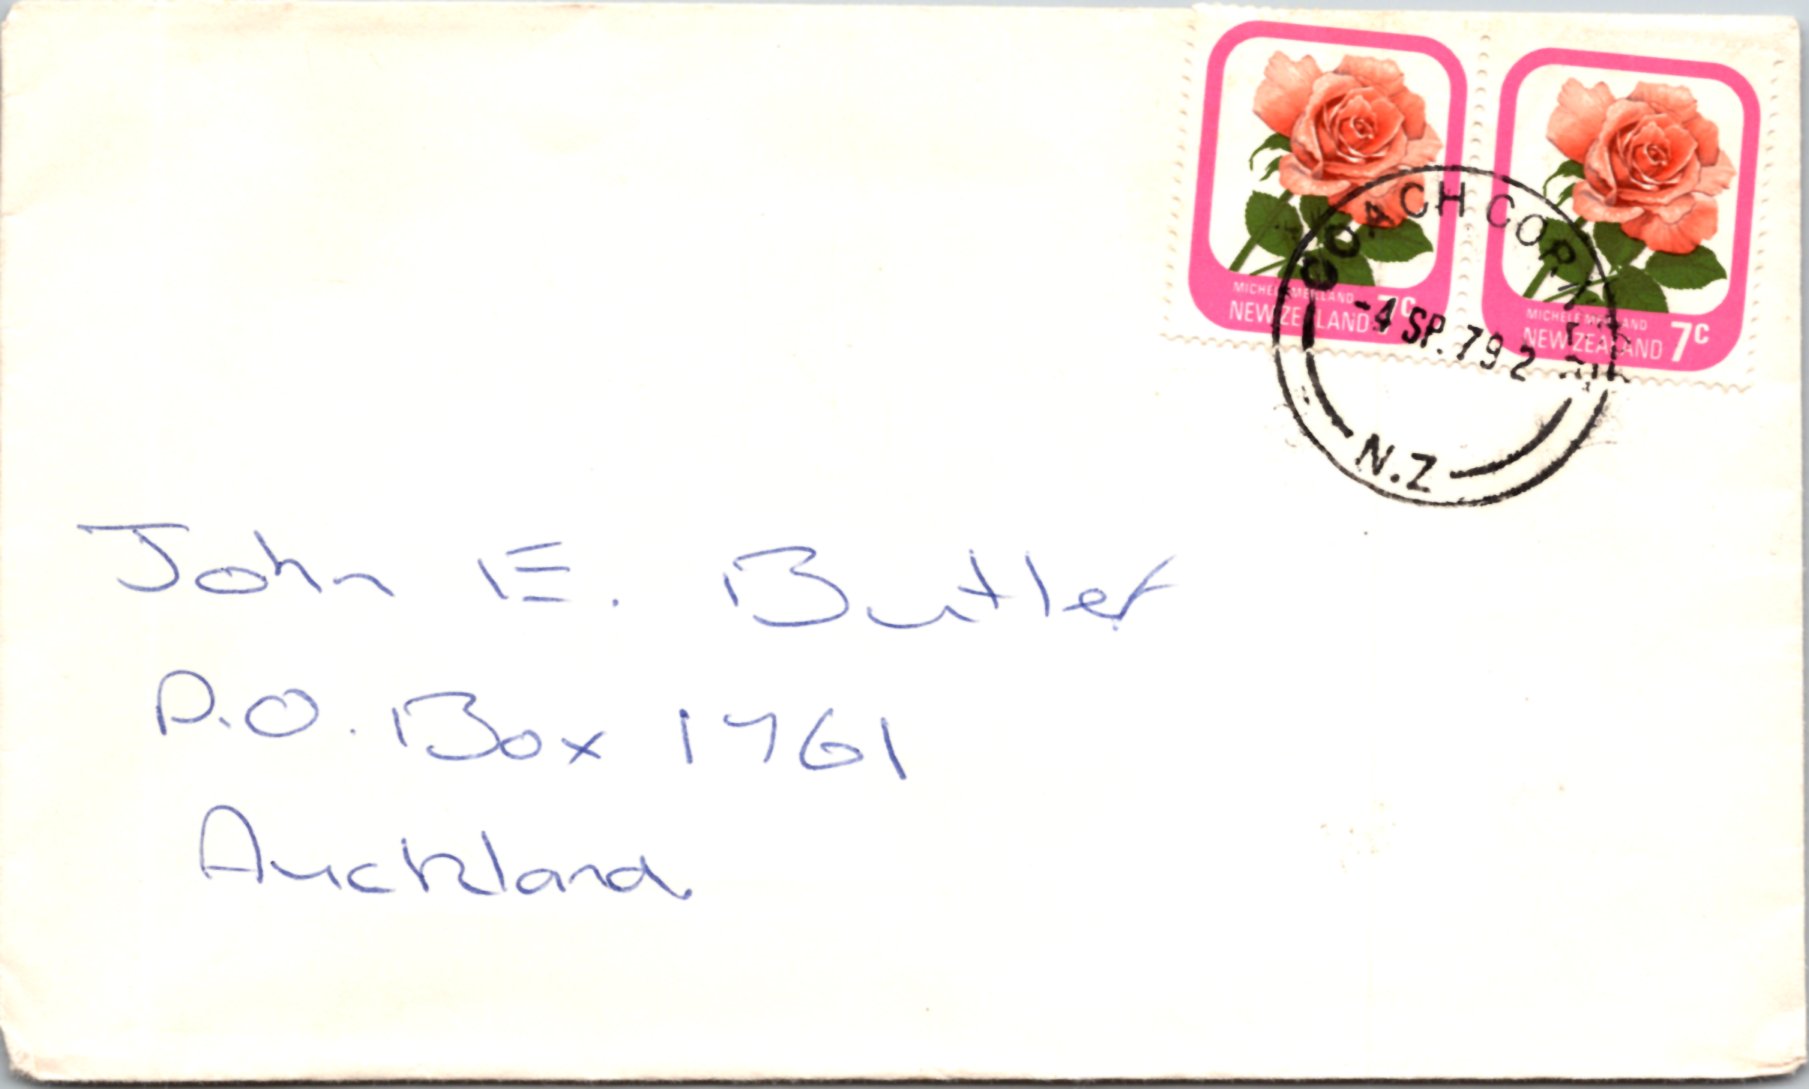 MICHELE MEILLAND
NEW ZEALAND 7c
MICHELE MEILLAND
NEW ZEALAND 7c
COACH CORNER
-4 SP. 79 2
N.Z
John E. Butler
P.O. Box 1761
Auckland